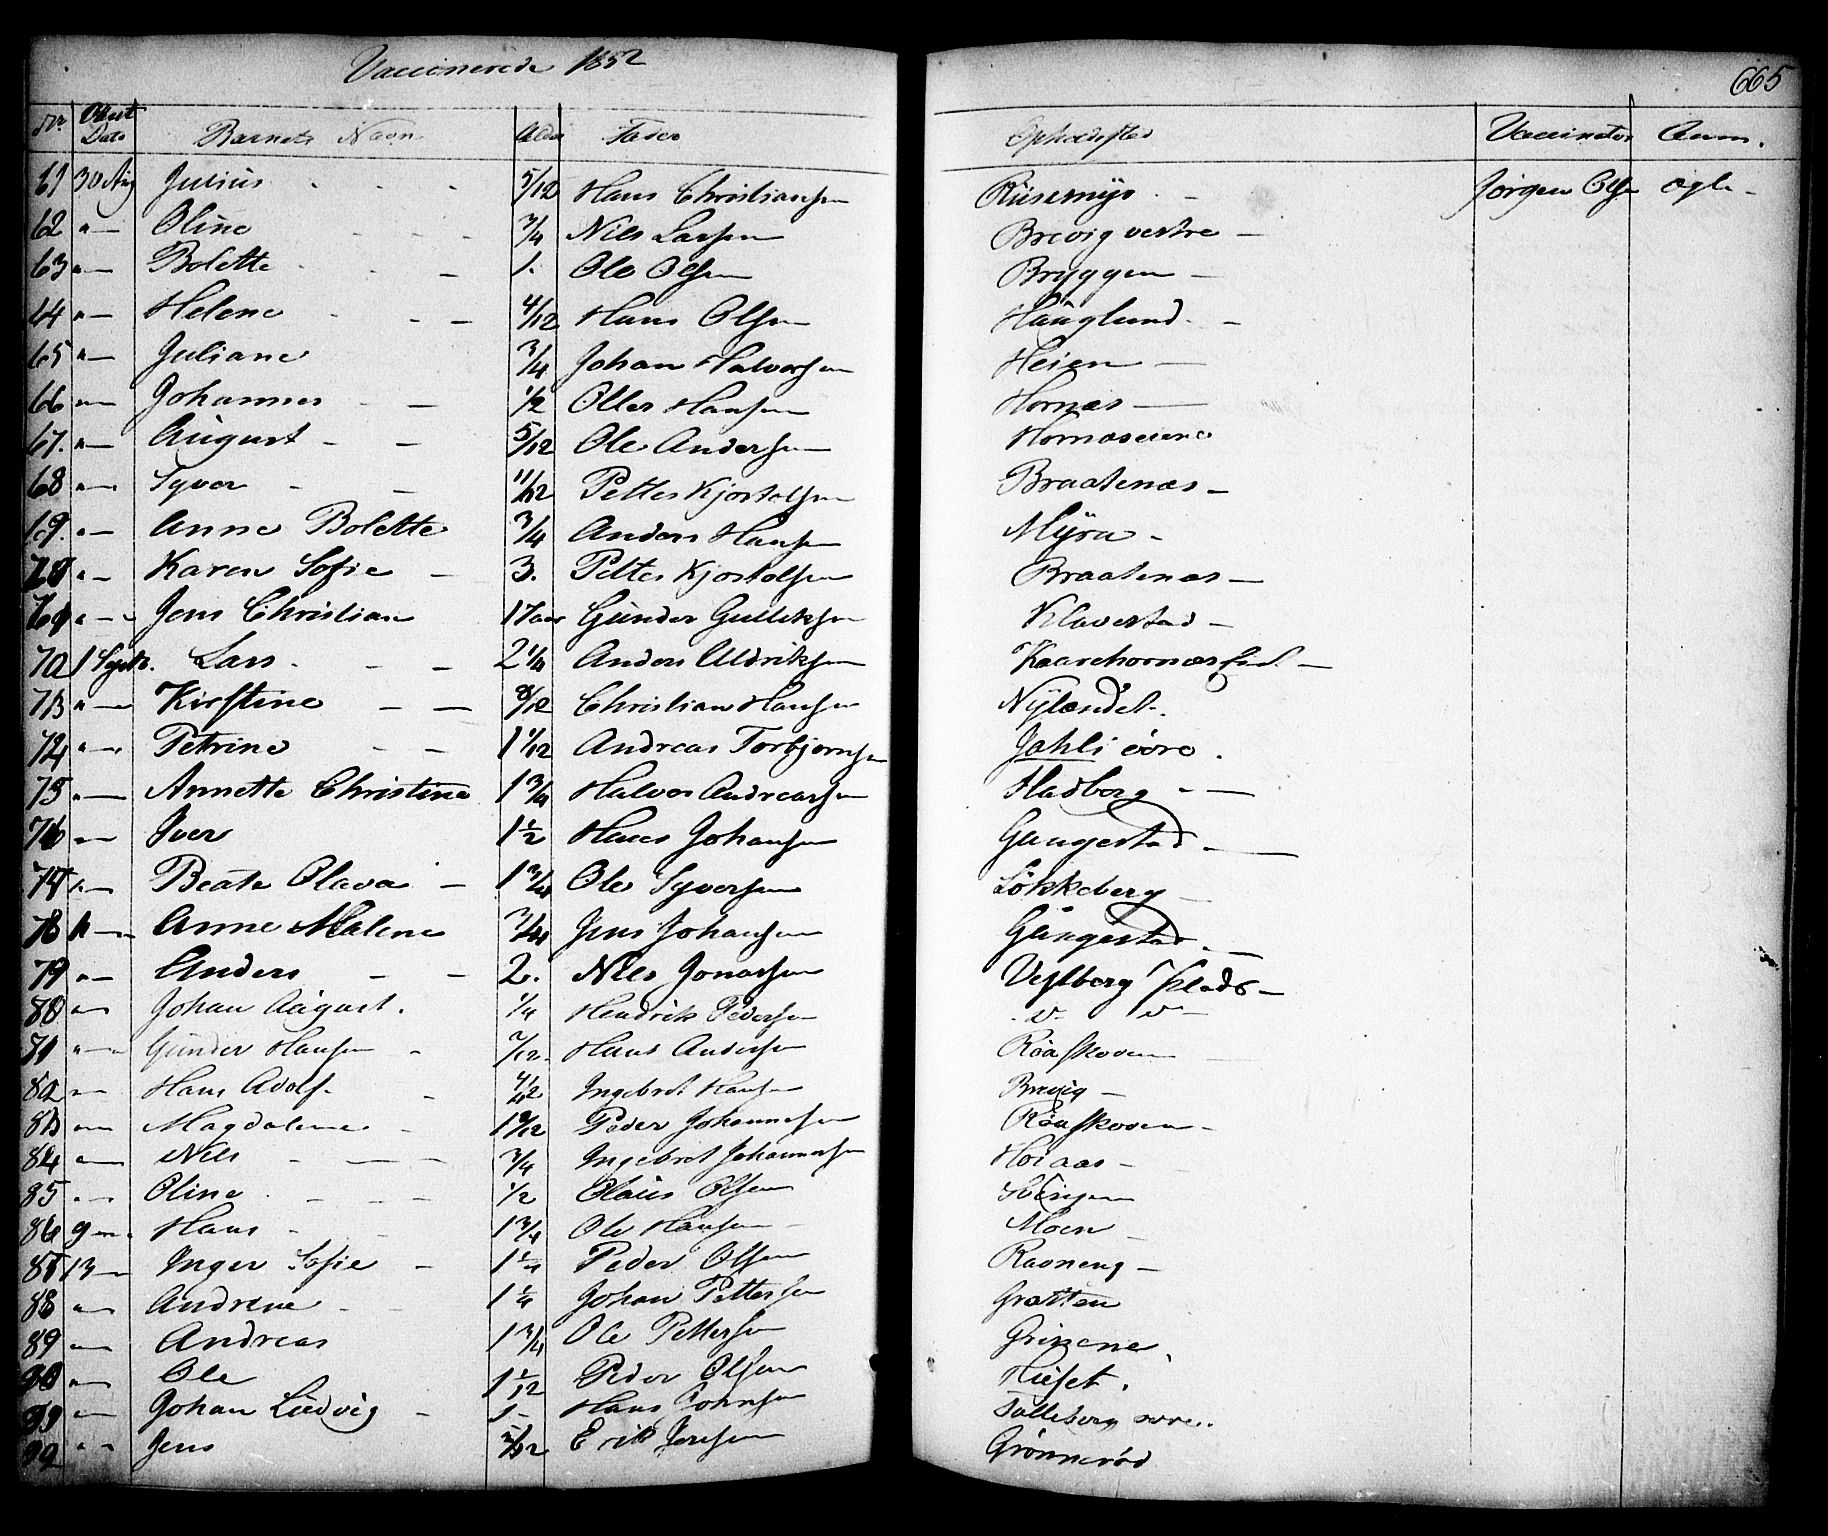 Vaccinerede 1852
665
Nr Vacct Dato Barnets Navn Alder Fader Opholdssted Vaccinator Anm.
61 30 Aug Julius 5/12 Hans Christiansen Riisemyr Jörgen Olsn ægte
62 " Oline 3/4 Nils Larsen Brevig vestre
63 " Bolette 1. Ole Olsen Bryggen
64 " Helene 4/12 Hans Olsen Hauglund
65 " Juliane 3/4 Johan Halvorsen Heien
66 " Johannes 1/2 Oller Hansen Hornæs
67. " August 5/12 Ole Andersen Hornæseiene
68 " Syver 11/12 Petter Kjostolsen Braatenæs
69. " Anne Bolette 3/4 Anders Hansen Myra
70 " Karen Sofie 3. Petter Kjostolsen Braatenæs
" Jens Christian 17 aar Gunder Gulliksen Klavestad
72 1 Septr. Lars 2 1/4 Anders Uldriksen
73 " Kirstine 8/12 Christian Hansen Nylændet
74 " Petrine 1 1/12 Andreas Torbjørnsen Jahli övre
75 " Annette Christine 1 3/4 Halvor Andreassen Hadberg
76 " Iver 1 1/2 Hans Johansen Gungestad
77 " Beate Olava 1 3/4 Ole Syversen Lökkeberg
78 " Anne Malene 3/4 Jens Johansen Gungestad
79 " Anders 2. Nils Jonassen Vestberg Plads
80 " Johan August. 1/4 Hendrik Pedersen " "
" Gunder Hansen 7/12 Hans Andersen Röaskoven
82 " Hans Adolf 4/12 Ingebret Hansen Brevig
83 " Magdalene 1 Peder Johannesen Röaskoven
84 " Nils 3/4 Ingebret Johannesen Holaas
85 " Oline 1/2 Olaus Olsen
86 9 Hans 1 3/4 Ole Hansen Moen
87 13 Inger Sofie 1 1/4 Peder Olsen Ravneng
88 " Andrine 1 1/4 Johan Pettersen Grætten
89 " Andreas 1 3/4 Ole Pettersen Grinene
90 " Ole 1 1/12 Peder Olsen Huset.
" Johan Ludvig 1 Hans Johnsen
92 " Jens 5/12 Erik Jensen Grönneröd